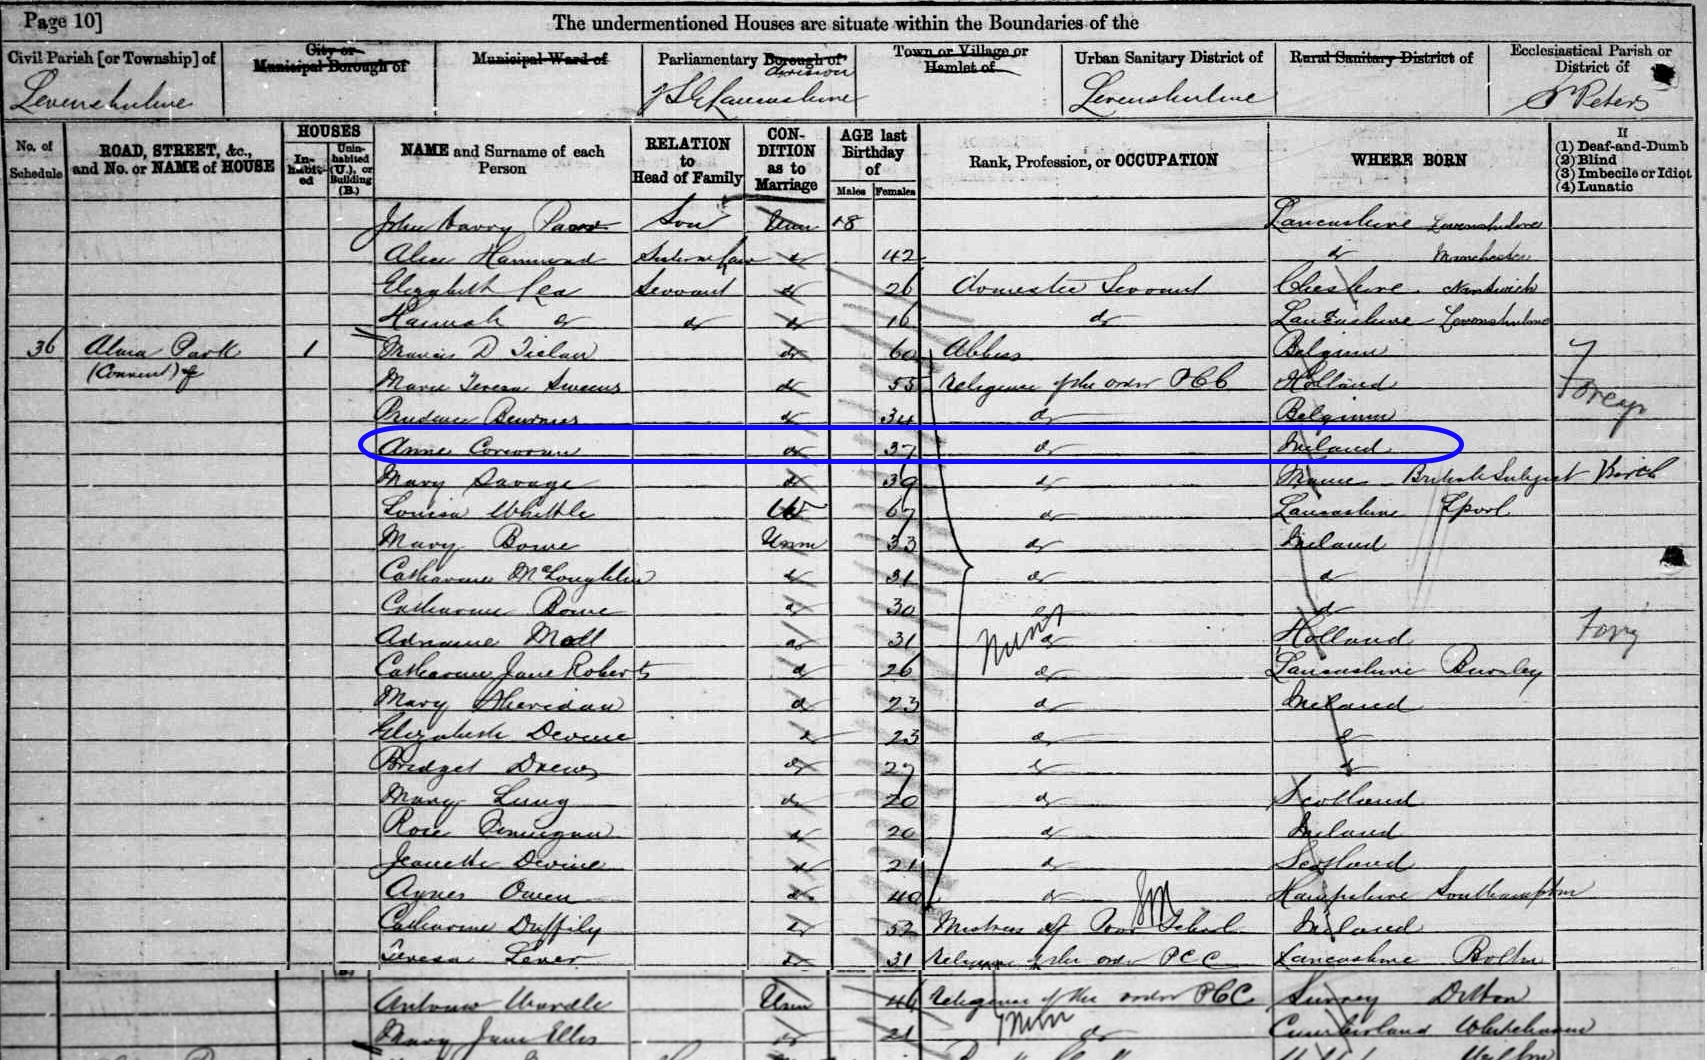 Page 10]
The undermentioned Houses are situate within the Boundaries of the
Civil Parish [or Township] of
City or Municipal Borough of
Municipal Ward of
Parliamentary Borough of Division
Town or Village or Hamlet of
Urban Sanitary District of
Rural Sanitary District of
Ecclesiastical Parish or District of
Levenshulme
S E Lancashire
Levenshulme
St Peters
No. of Schedule
ROAD, STREET, &c., and No. or NAME of HOUSE
HOUSES
In-habit-ed
Unin-habited (U.), or Building (B.)
NAME and Surname of each Person
RELATION to Head of Family
CON-DITION as to Marriage
AGE last Birthday of
Males
Females
Rank, Profession, or OCCUPATION
WHERE BORN
If
(1) Deaf-and-Dumb
(2) Blind
(3) Imbecile or Idiot
(4) Lunatic
John Harry Son Unm 18 Lancashire Levenshulme
Alice Hammond Sister in law do 42 do Manchester
Elizabeth Lea Servant do 26 Domestic Servant Cheshire Nantwich
Hannah do do do 16 do Lancashire Levenshulme
36 Alma Park 1 do 60 Abbess Belgium
(Convent)
Marie Teresa do 55 Religieuse of the order PCC Holland
Foreign
Prudence do 34 do Belgium
Anne Corcoran do 37 do Ireland
Mary Savage do 39 do British Subject
Louisa Whittle W 67 do Lancashire Lpool
Mary Bowe Unm 33 do Ireland
Catharine McLoughlin do 31 do do
Catharine Bowe do 30 do do
Nuns
Moll do 31 do Holland
Catharine Jane Roberts do 26 do Lancashire Burnley
Mary Sheridan do 23 do Ireland
Elizabeth Devine do 23 do do
Bridget Drews do 27 do do
Mary Lung do 20 do Scotland
Rose Finnigan do 26 do Ireland
Jeanette Devine do 21 do Scotland
Agnes Owen do 40 do Hampshire Southampton
Catharine Duffily do 52 Mistress of Poor School Ireland
Teresa Lever do 31 Religieuse of the order PCC Lancashire Bolton
Wardle Unm 46 Religieuse of the order PCC Surrey Ditton
Nun
Mary Jane Ellis do 21 do Cumberland Whitehaven